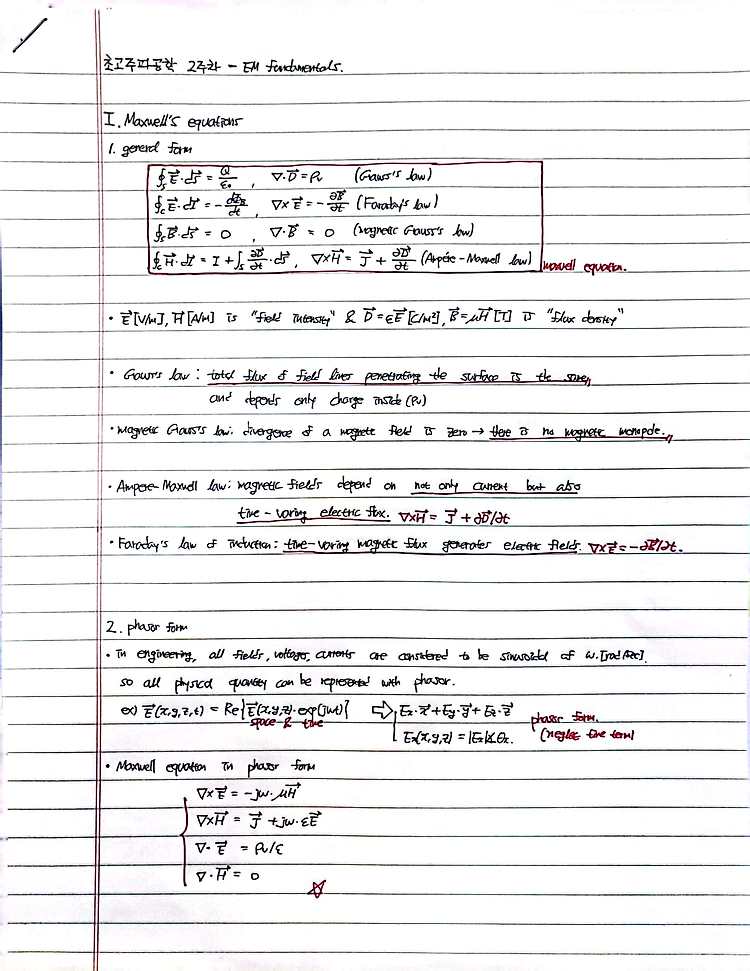 초고주파공학 2주차 - EM fundamentals.
I. Maxwell's equations
1. general form
∮ₛ E⃗·dS⃗ = Q/ε₀ , ∇·D⃗ = ρᵥ (Gauss's law)
∮c E⃗·dl⃗ = -dΦ_B/dt , ∇×E⃗ = -∂B⃗/∂t (Faraday's law)
∮ₛ B⃗·dS⃗ = 0 , ∇·B⃗ = 0 (magnetic Gauss's law)
∮c H⃗·dl⃗ = I + ∫ₛ ∂D⃗/∂t·dS⃗, ∇×H⃗ = J⃗ + ∂D⃗/∂t (Ampére-Maxwell law) maxwell equation.
• E⃗[V/m], H⃗[A/m] is "field intensity" & D⃗=εE⃗[C/m²], B⃗=μH⃗[T] is "flux density"
• Gauss's law : total flux of field lines penetrating the surface is the same,
and depends only charge inside (ρᵥ)
• magnetic Gauss's law: divergence of a magnetic field is zero → there is no magnetic monopole.
• Ampere-Maxwell law: magnetic fields depend on not only current but also
time-varing electric flux. ∇×H⃗ = J⃗ + ∂D⃗/∂t
• Faraday's law of induction: time-varing magnetic flux generates electric fields. ∇×E⃗ = -∂B⃗/∂t.
2. phasor form
• In engineering, all fields, voltages, currents are considered to be sinusoidal of ω.[rad/sec].
so all physical quantity can be represented with phasor.
ex) E⃗(x,y,z,t) = Re{E⃗(x,y,z)·exp(jωt)} ⇨ Ex·x⃗ + Ey·y⃗ + Ez·z⃗ phasor form.
space & time Ex(x,y,z) = |Ex|∡θx. (neglect time term)
• Maxwell equation in phasor form
∇×E⃗ = -jω·μH⃗
∇×H⃗ = J⃗ + jω·εE⃗
∇·E⃗ = ρᵥ/ε
∇·H⃗ = 0